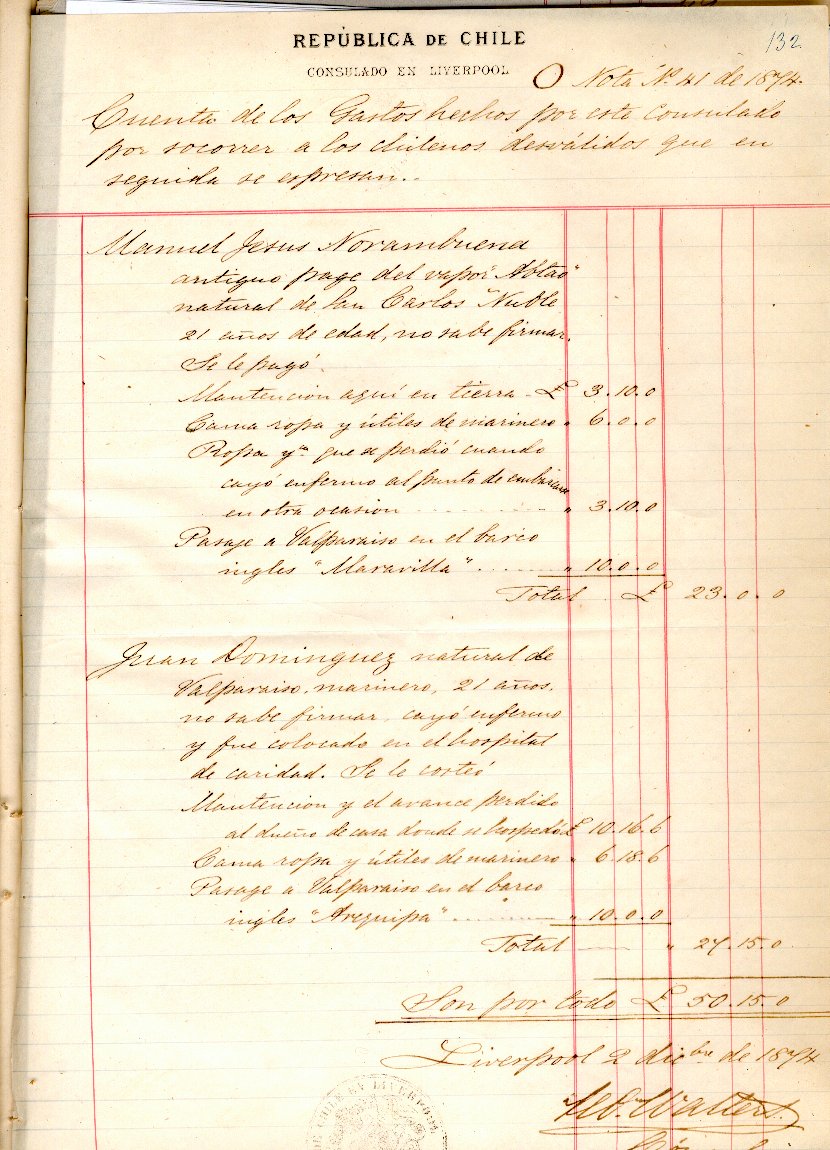 132
REPÚBLICA DE CHILE
CONSULADO EN LIVERPOOL
Nota Nº 41 de 1874.
Cuenta de los Gastos hechos por este Consulado
por socorrer a los chilenos desválidos que en
seguida se espresan..
Manuel Jesus Norambuena
antiguo page del vapor "Abtao"
natural de San Carlos "Nuble
21 años de edad, no sabe firmar.
Se le pagó.
Mantencion aquí en tierra - £ 3.10.0
Cama ropa y útiles de marinero " 6.0.0
Ropa yª que se perdió cuando
cayó enfermo al punto de embarcarse
en otra ocasion " 3.10.0
Pasaje a Valparaiso en el barco
ingles "Maravilla" " 10.0.0
Total £ 23.0.0
Juan Dominguez natural de
Valparaiso, marinero, 21 años,
no sabe firmar, cayó enfermo
y fue colocado en el hospital
de caridad. Se le costeó
Mantencion y el avance perdido
al dueño de casa donde se hospedó £ 10.16.6
Cama ropa y útiles de marinero " 6.18.6
Pasage a Valparaiso en el barco
ingles "Arequipa" " 10.0.0
Total " 27.15.0
Son por todo £ 50.15.0
Liverpool 2 dicbre de 1874
Walters
DE CHILE EN LIVERPOOL